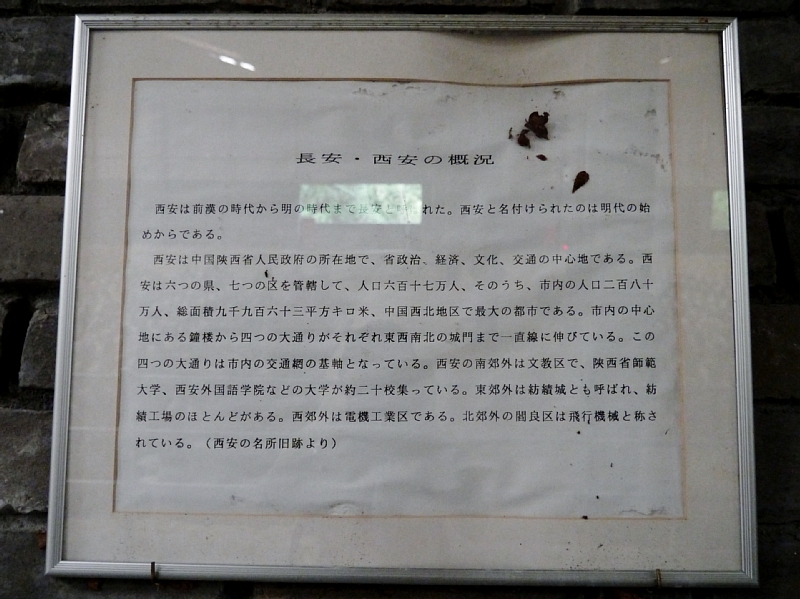 長安・西安の概況
西安は前漢の時代から明の時代まで長安と呼ばれた。西安と名付けられたのは明代の始
めからである。
西安は中国陝西省人民政府の所在地で、省政治、経済、文化、交通の中心地である。西
安は六つの県、七つの区を管轄して、人口六百十七万人、そのうち、市内の人口二百八十
万人、総面積九千九百六十三平方キロ米、中国西北地区で最大の都市である。市内の中心
地にある鐘楼から四つの大通りがそれぞれ東西南北の城門まで一直線に伸びている。この
四つの大通りは市内の交通網の基軸となっている。西安の南郊外は文教区で、陝西省師範
大学、西安外国語学院などの大学が約二十校集っている。東郊外は紡績城とも呼ばれ、紡
績工場のほとんどがある。西郊外は電機工業区である。北郊外の閻良区は飛行機械と称さ
れている。（西安の名所旧跡より）